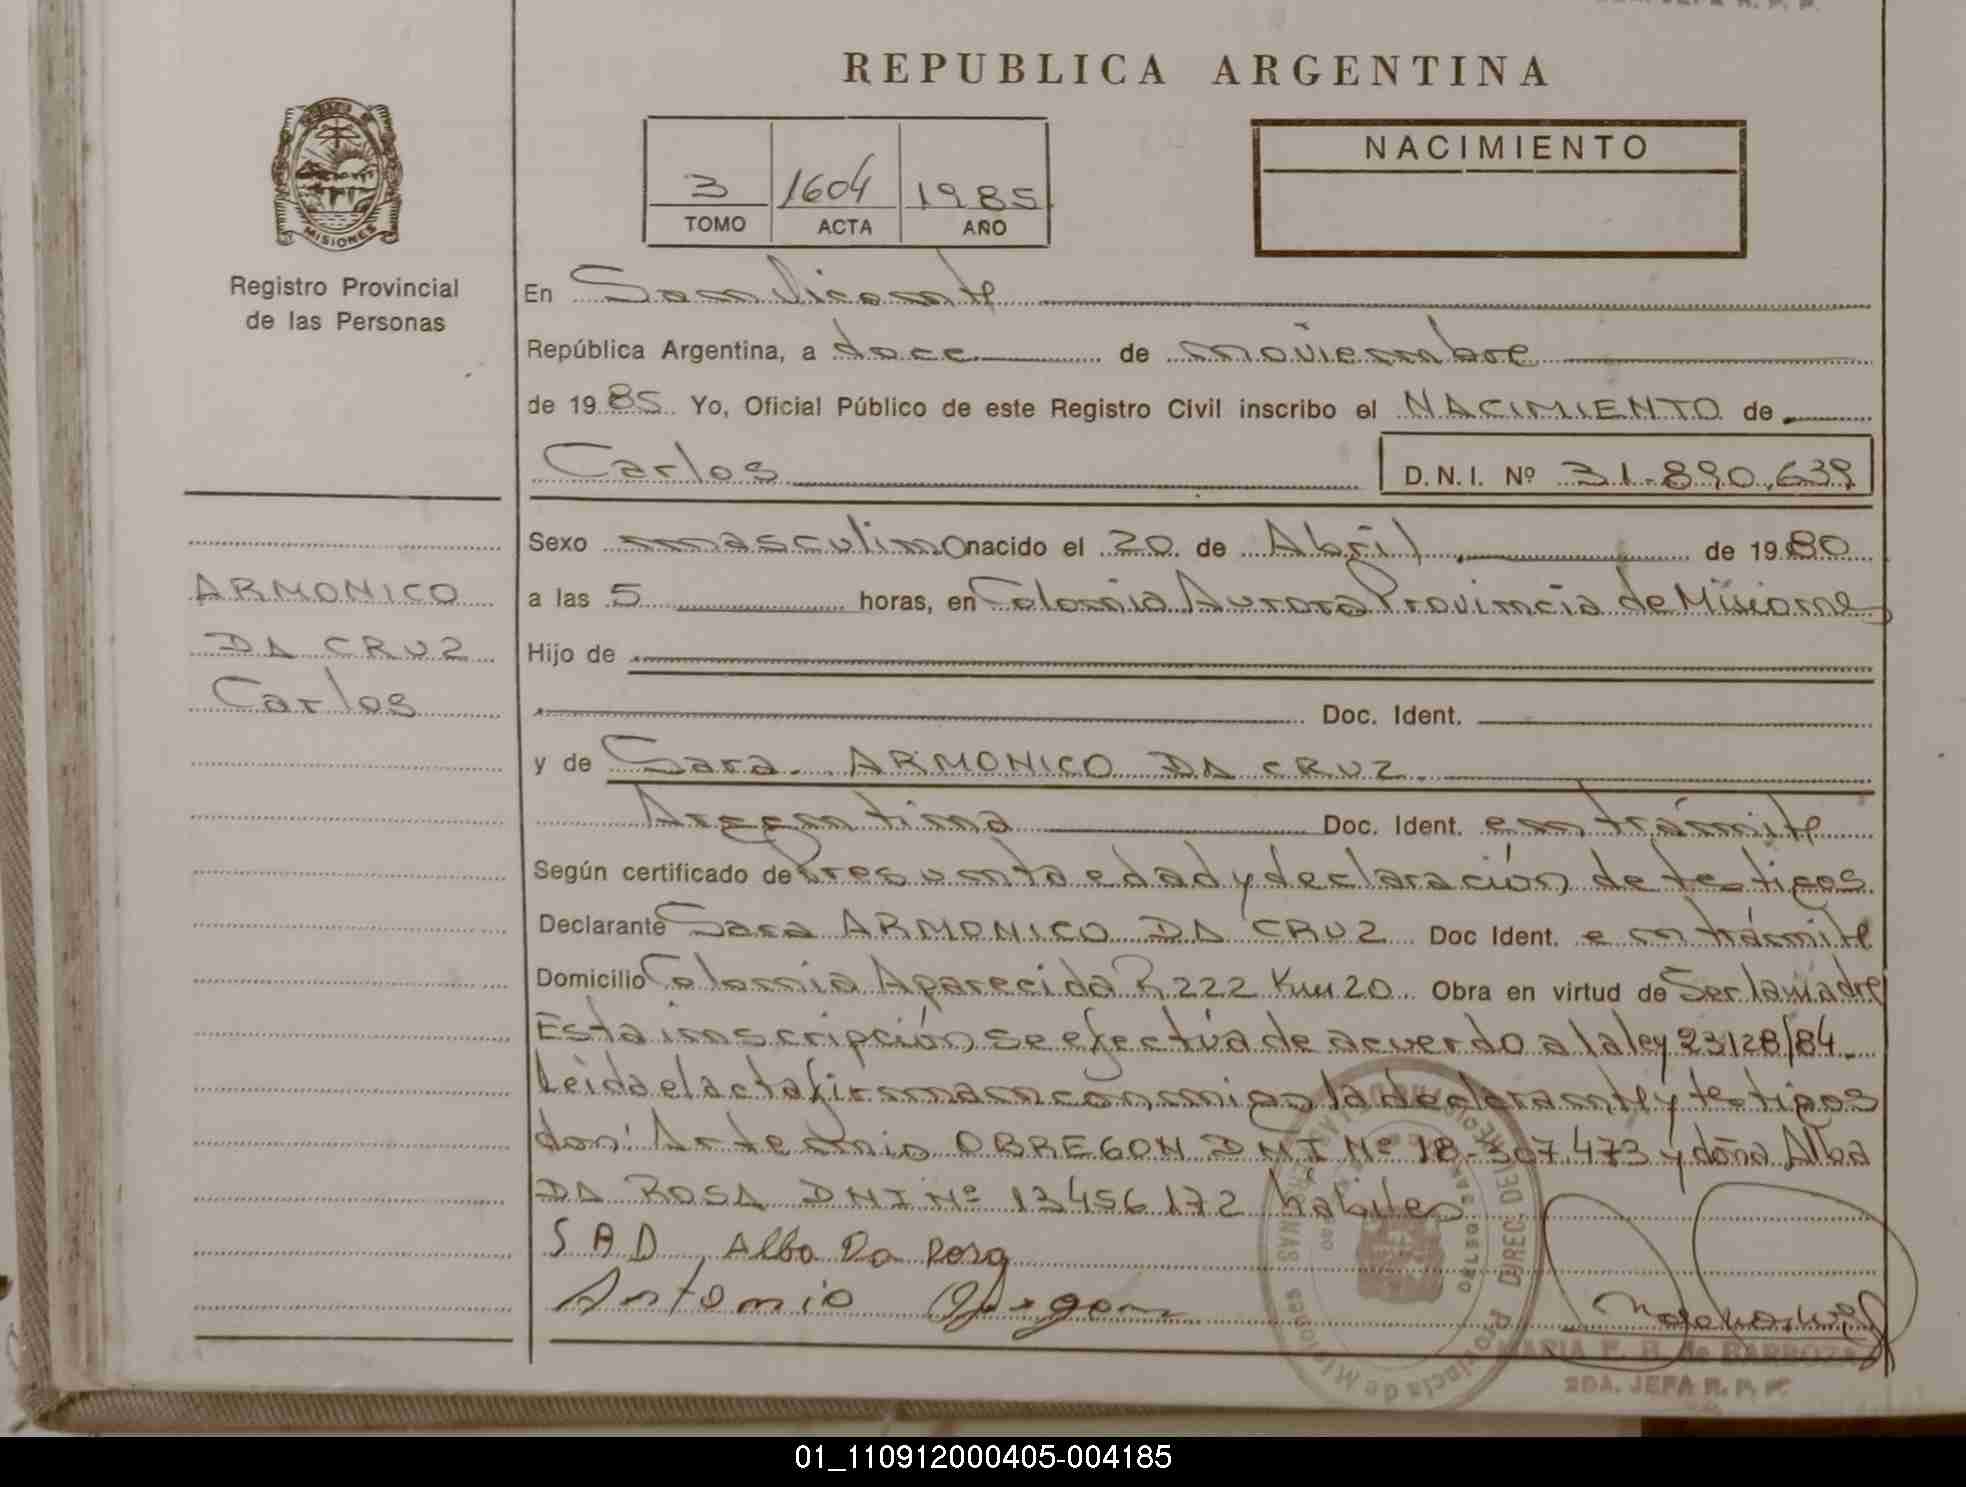 REPUBLICA ARGENTINA
MISIONES
Registro Provincial
de las Personas
3 1604 1985
TOMO ACTA AÑO
NACIMIENTO
En San Vicente
República Argentina, a doce de noviembre
de 1985 Yo, Oficial Público de este Registro Civil inscribo el NACIMIENTO de
Carlos D.N.I. Nº 31.890.639
Sexo masculino nacido el 20 de Abril de 1980
a las 5 horas, en Colonia Aurora Provincia de Misiones
Hijo de
Doc. Ident.
y de Sara ARMONICO DA CRUZ
Argentina Doc. Ident. en trámite
Según certificado de Presunta edad y declaración de testigos
Declarante Sara ARMONICO DA CRUZ Doc Ident. en trámite
Domicilio Colonia Aparecida R 222 Km 20 Obra en virtud de Ser la madre
Esta inscripción se efectúa de acuerdo a la ley 23128/84
Leida el acta firman conmigo la declarante y testigos
don: Artemio OBREGON DNI Nº 18.307.473 y doña Alba
DA ROSA DNI Nº 13456172 hábiles
S A D Alba Da Rosa
Antonio
ARMONICO
DA CRUZ
Carlos
Provincia de Misiones
MARIA E. B. de BARBOZA
2DA. JEFA R. P. P.
01_110912000405-004185